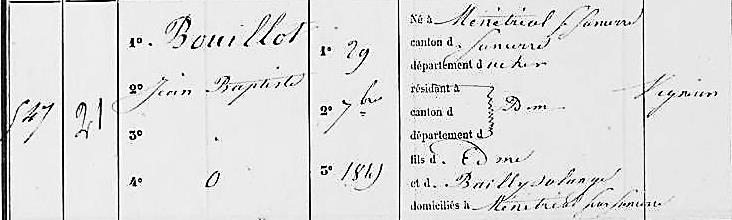 547 21
1º. Bouillot
2º Jean Baptiste
3º .
4º 0
1º 29
2º 7bre
3º 1849
Né à Ménétréol s. Sancerre
canton d Sancerre
département du cher
résidant à
canton d Dm
département d
fils d Edme
et d Bailly Solange
domiciliés à Ménétréol sur Sancerre
Vigneron